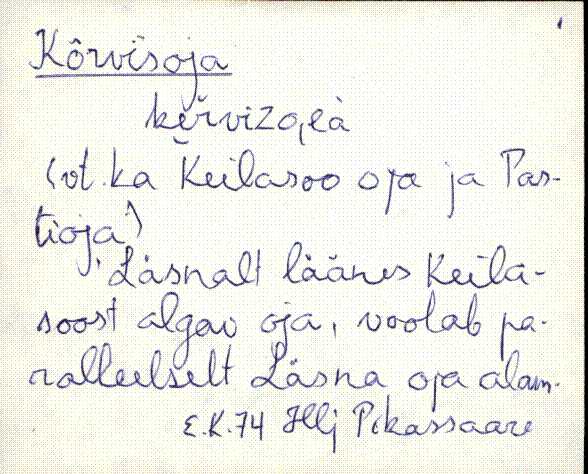 Kõrvisoja
kèrvizo,eà
(vt. ka Keilasoo oja ja Pas-
tioja)
Läsnalt läänes Keila-
soost algav oja, voolab pa-
ralleelselt Läsna oja alam-
E.K. 74 Hlj Pikassaare